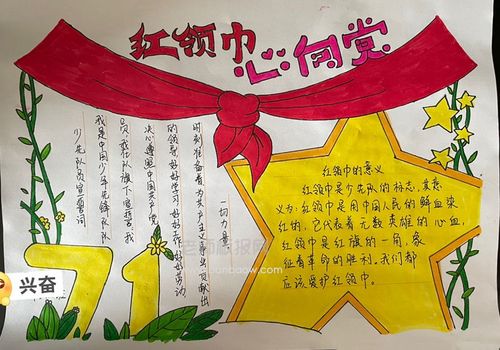 红领巾心向党
少先队员宣誓词
我是中国少年先锋队队
员,我在队旗下宣誓:我
决心遵照中国共产党
的领导,好好学习,好好工作,好好劳动,
时刻准备着,为共产主义事业,贡献出
一切力量
红领巾的意义
红领巾是少先队的标志,其意
义为:红领巾是用中国人民的鲜血染
红的,它代表着无数英雄的心血,
红领巾是红旗的一角,象
征着革命的胜利.我们都
应该爱护红领巾。
71
兴奋